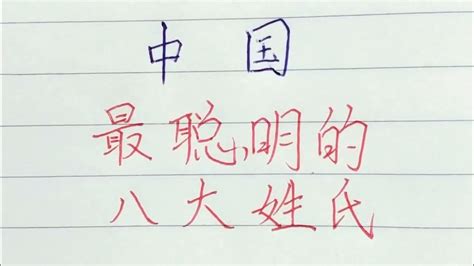 中国
最聪明的
八大姓氏